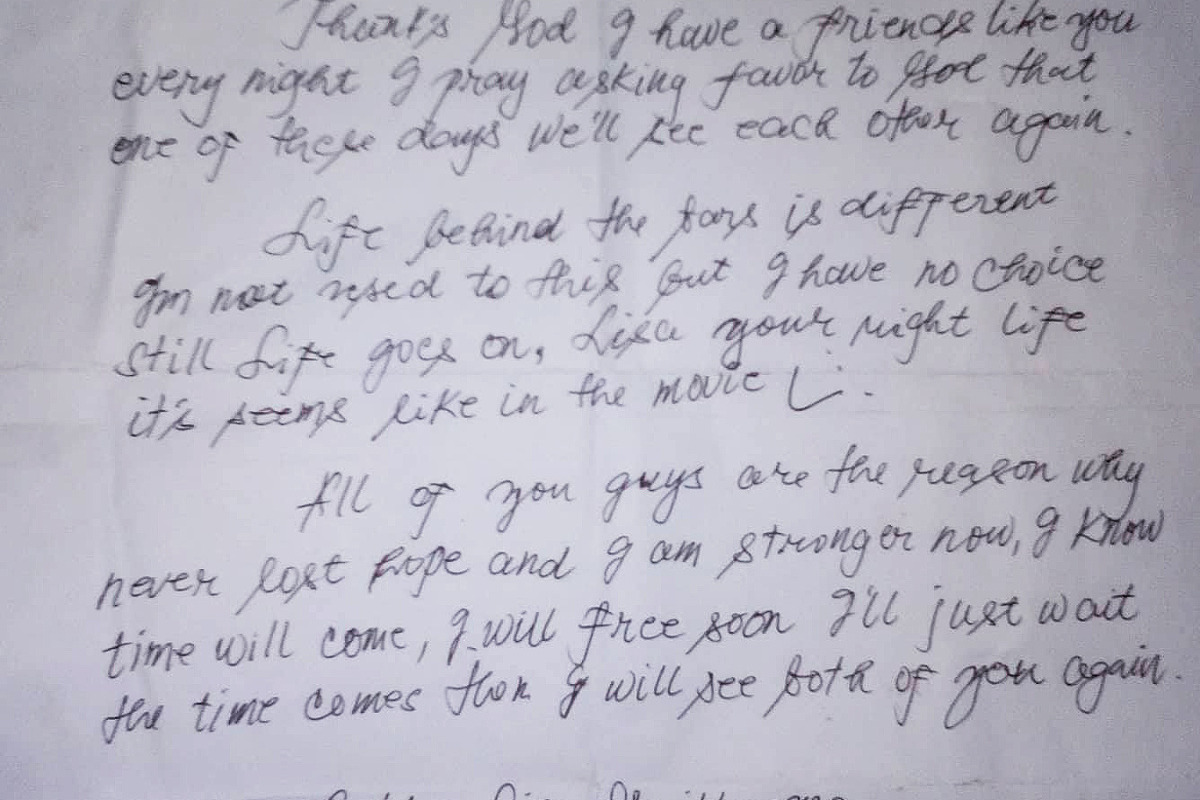 Thank's God I have a friends like you
every night I pray asking favor to God that
one of these days we'll see each other again.
Life behind the bars is different
I'm not used to this but I have no choice
still Life goes on, Lisa your right life
it's seems like in the movie
All of you guys are the reason why
never lost hope and I am stronger now, I know
time will come, I will free soon I'll just wait
the time comes then I will see both of you again.